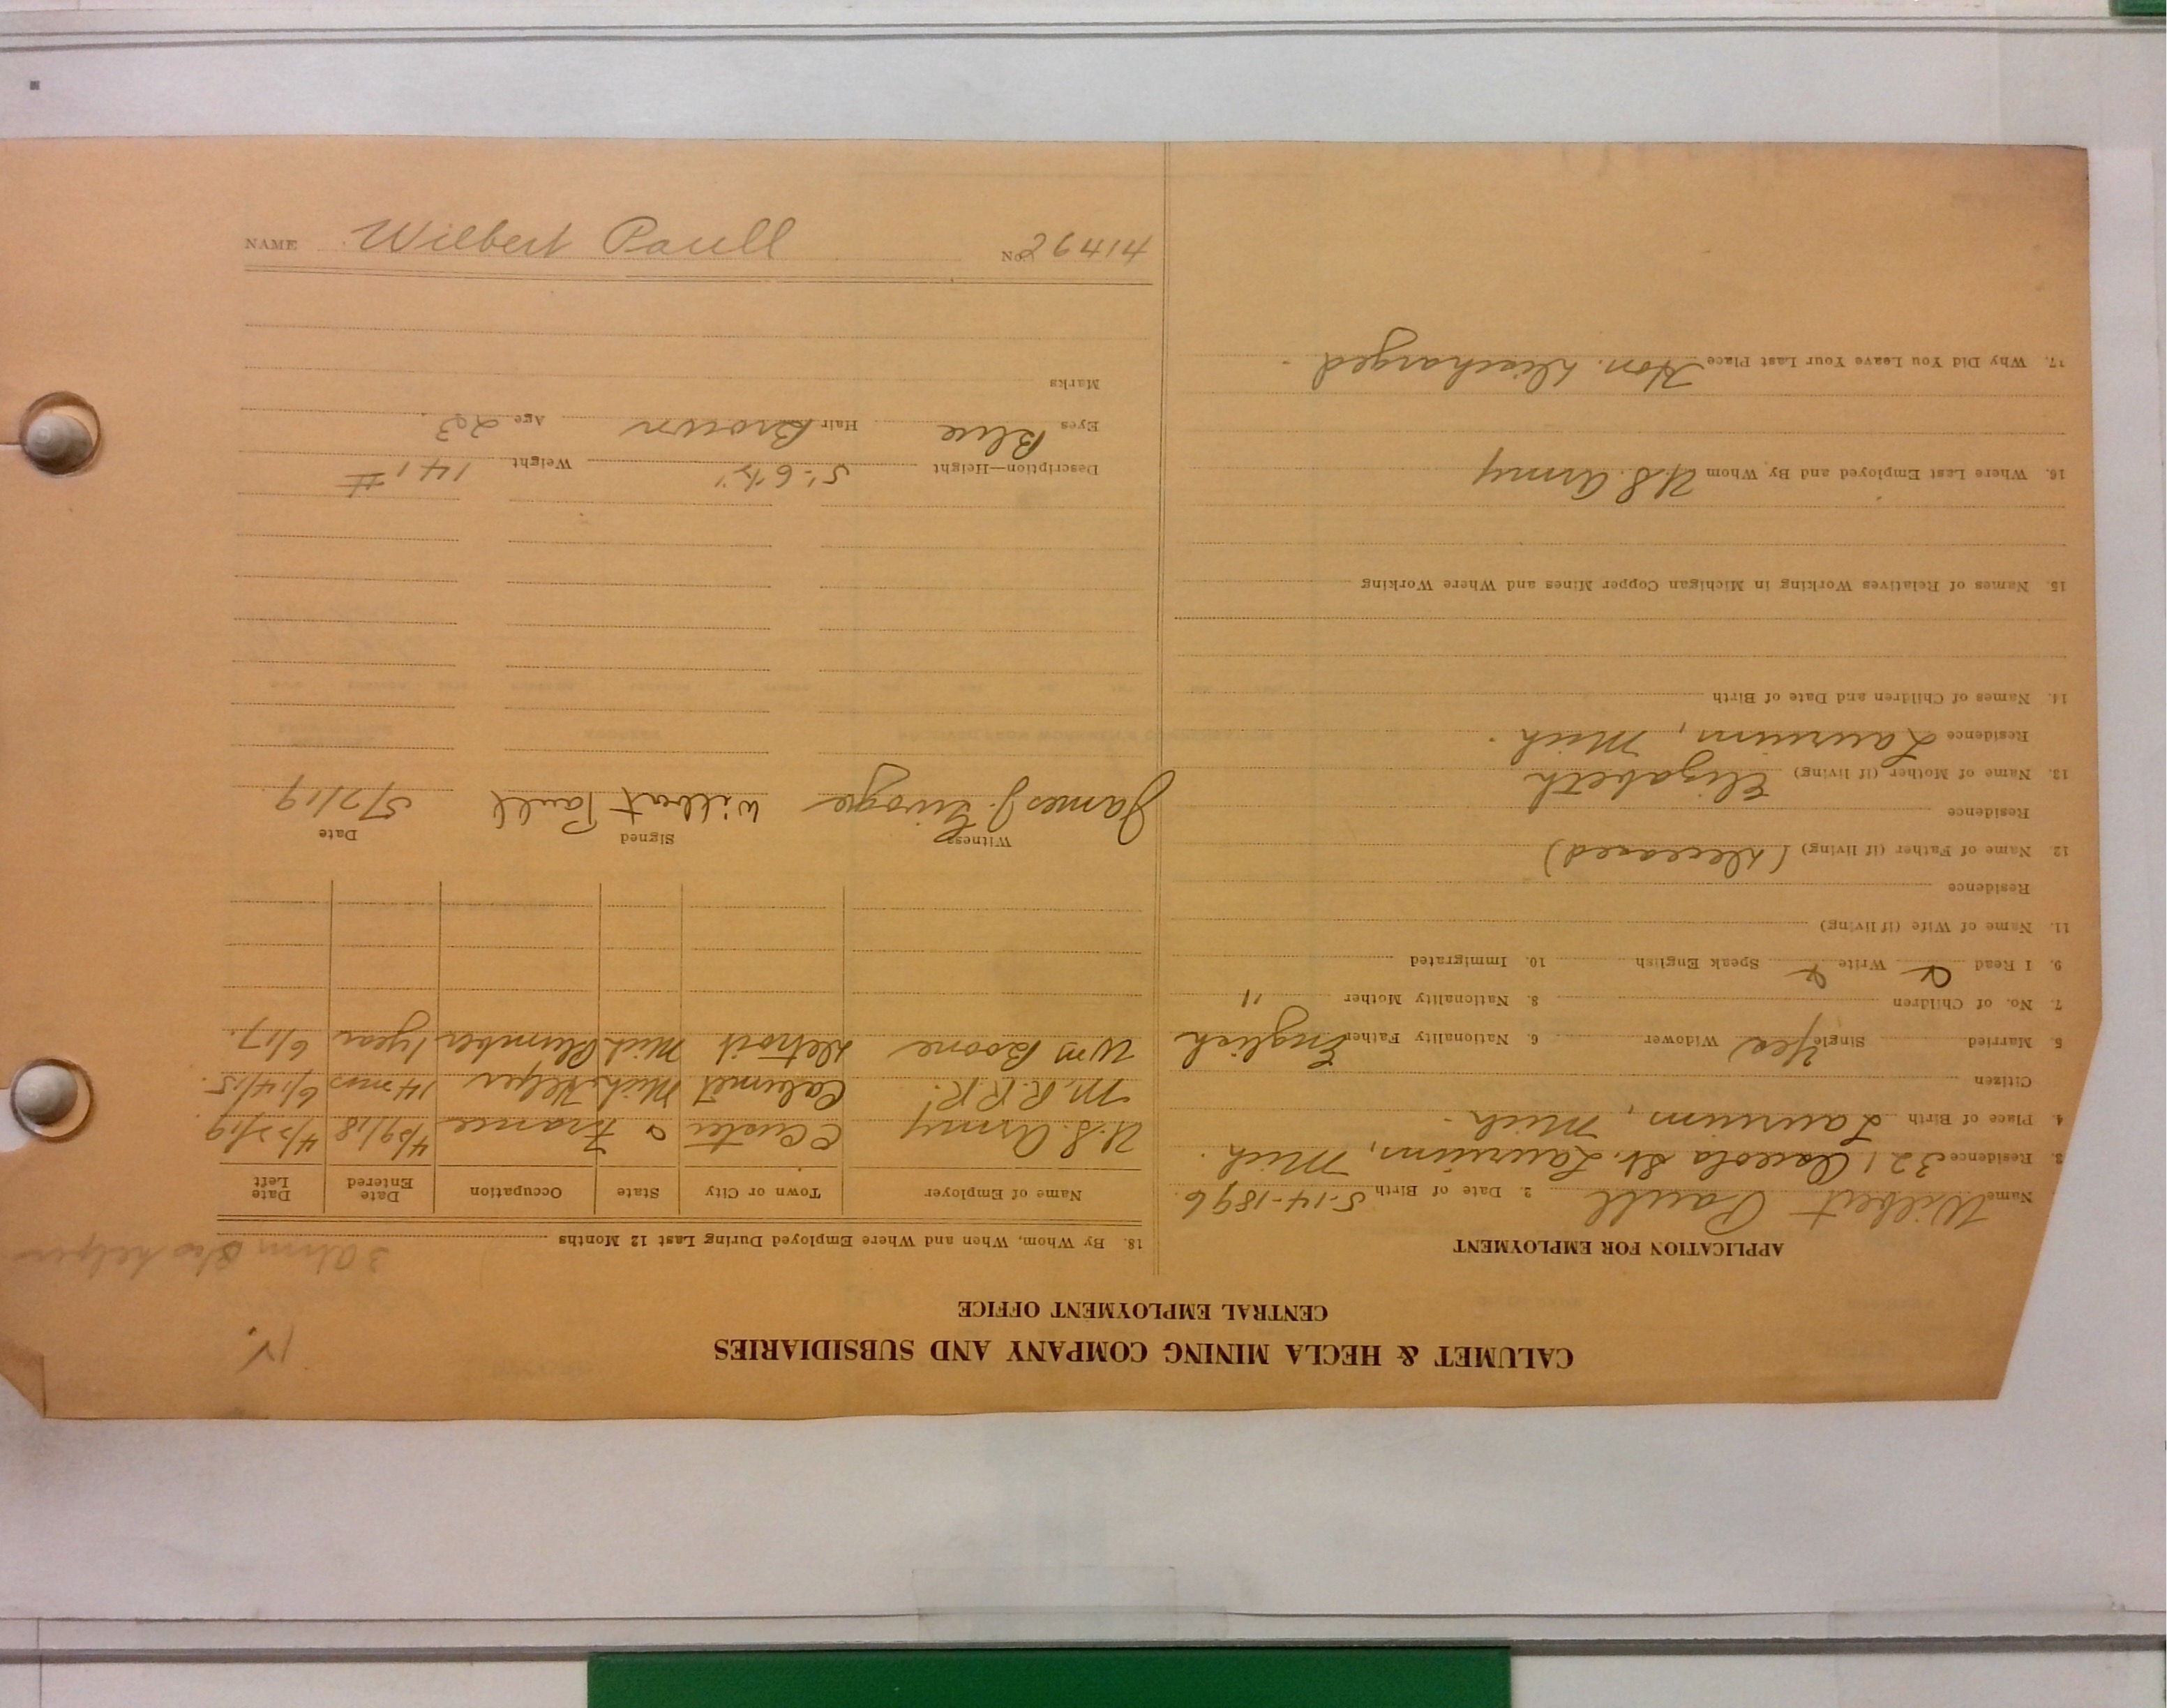 CALUMET & HECLA MINING COMPANY AND SUBSIDIARIES
CENTRAL EMPLOYMENT OFFICE
APPLICATION FOR EMPLOYMENT
Name Wilbert Paull 2. Date of Birth 5-14-1896.
3. Residence 321 Osceola St. Laurium, Mich.
4. Place of Birth Laurium, Mich.
Citizen
5. Married Single Yes Widower 6. Nationality Father English
7. No. of Children 8. Nationality Mother "
9. I Read Write Speak English 10. Immigrated
11. Name of Wife (if living)
Residence
12. Name of Father (if living) (deceased)
Residence
13. Name of Mother (if living) Elizabeth
Residence Laurium, Mich.
14. Names of Children and Date of Birth
15. Names of Relatives Working in Michigan Copper Mines and Where Working
16. Where Last Employed and By Whom U.S. Army
17. Why Did You Leave Your Last Place Hon. discharged.
18. By Whom, When and Where Employed During Last 12 Months
Name of Employer Town or City State Occupation Date Entered Date Left
U.S. Army France 4/29/18 4/22/19
M.R.R.R. Calumet Mich. Helper 14 mos 6/14/15.
Wm Boone Detroit Mich Plumber 1 year 6/17.
Witness Signed Date
James J. Wilbert Paull 5/2/19
Description—Height 5'-6½" Weight 141 #
Eyes Blue Hair Brown Age 23.
Marks
NAME Wilbert Paull No. 26414